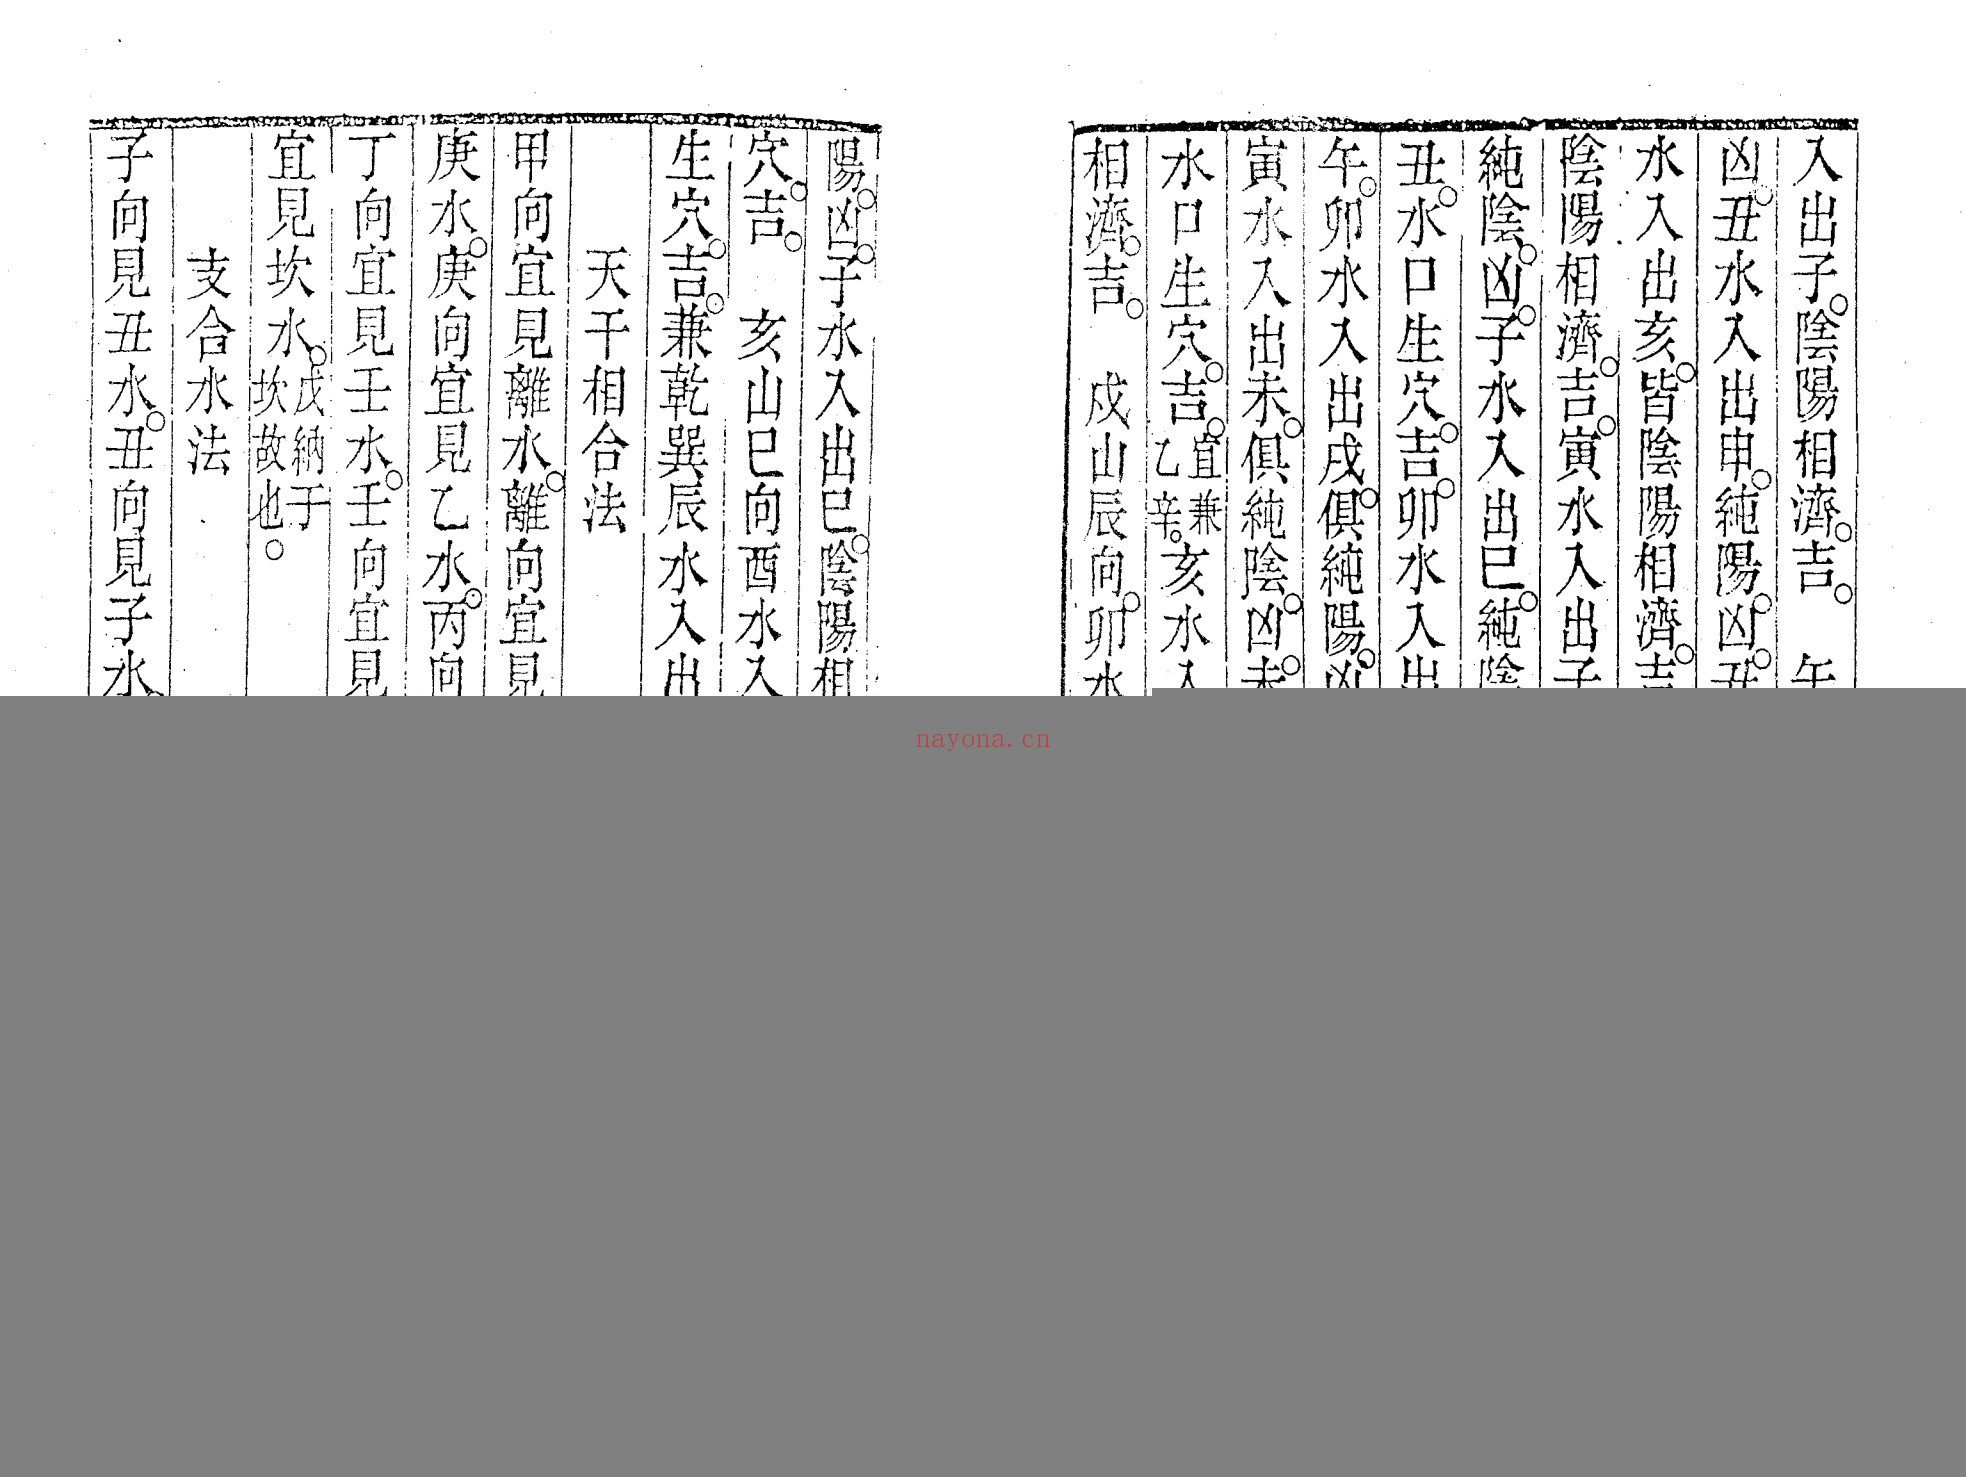 入出子。陰陽相濟。吉。　午
凶。丑水入出申。純陽。凶。丑
水入出亥。皆陰陽相濟。吉
陰陽相濟。吉。寅水入出子
純陰。凶。子水入出巳。純陰
丑。水口生穴。吉。卯水入出
午。卯水入出戌。俱純陽。凶
寅水入出未。俱純陰。凶。未
水口生穴。吉。宜兼乙辛。亥水入
相濟。吉。　戍山辰向。卯水
陽。凶。子水入出巳。陰陽相
穴。吉。　亥山巳向酉水入
生穴。吉。兼乾巽辰水入出
天干相合法
甲向宜見離水。離向宜見
庚水。庚向宜見乙水。丙向
丁向宜見壬水。壬向宜見
宜見坎水。戊納于坎故也。
支合水法
子向見丑水。丑向見子水
nayona.cn